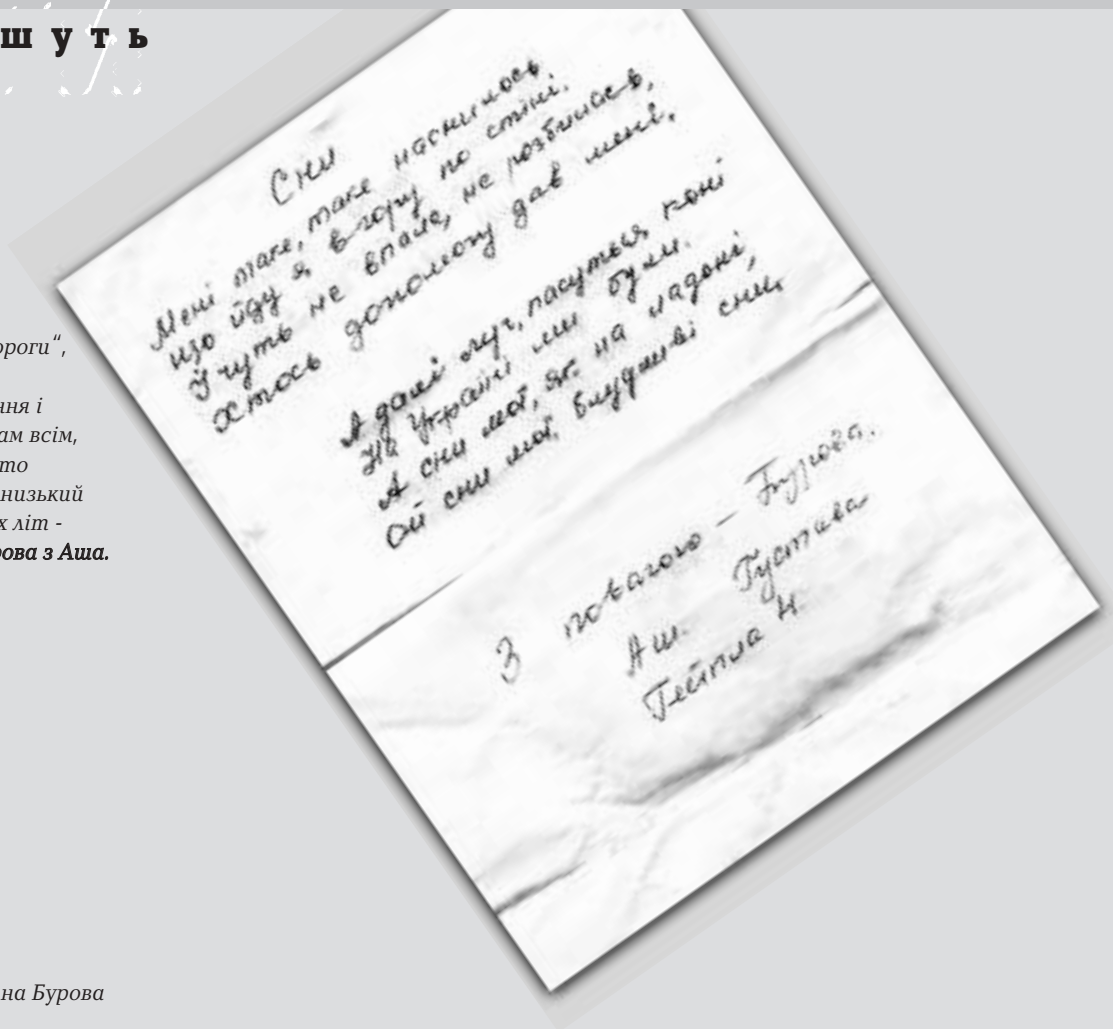 шуть
ороги“,
ння і
ам всім,
то
низький
х літ -
рова з Аша.
на Бурова
Сни
Мені таке, таке наснилось
що йду я вгору по стіні.
І чуть не впала, не розбилась,
Хтось допомогу дав мені.
А далі луг, пасуться коні
На Україні ми були.
А сни мої, як на ладоні,
Ой сни мої, блудниві сни,
З повагою — Бурова.
Аш. Густава
Тейтла 4.